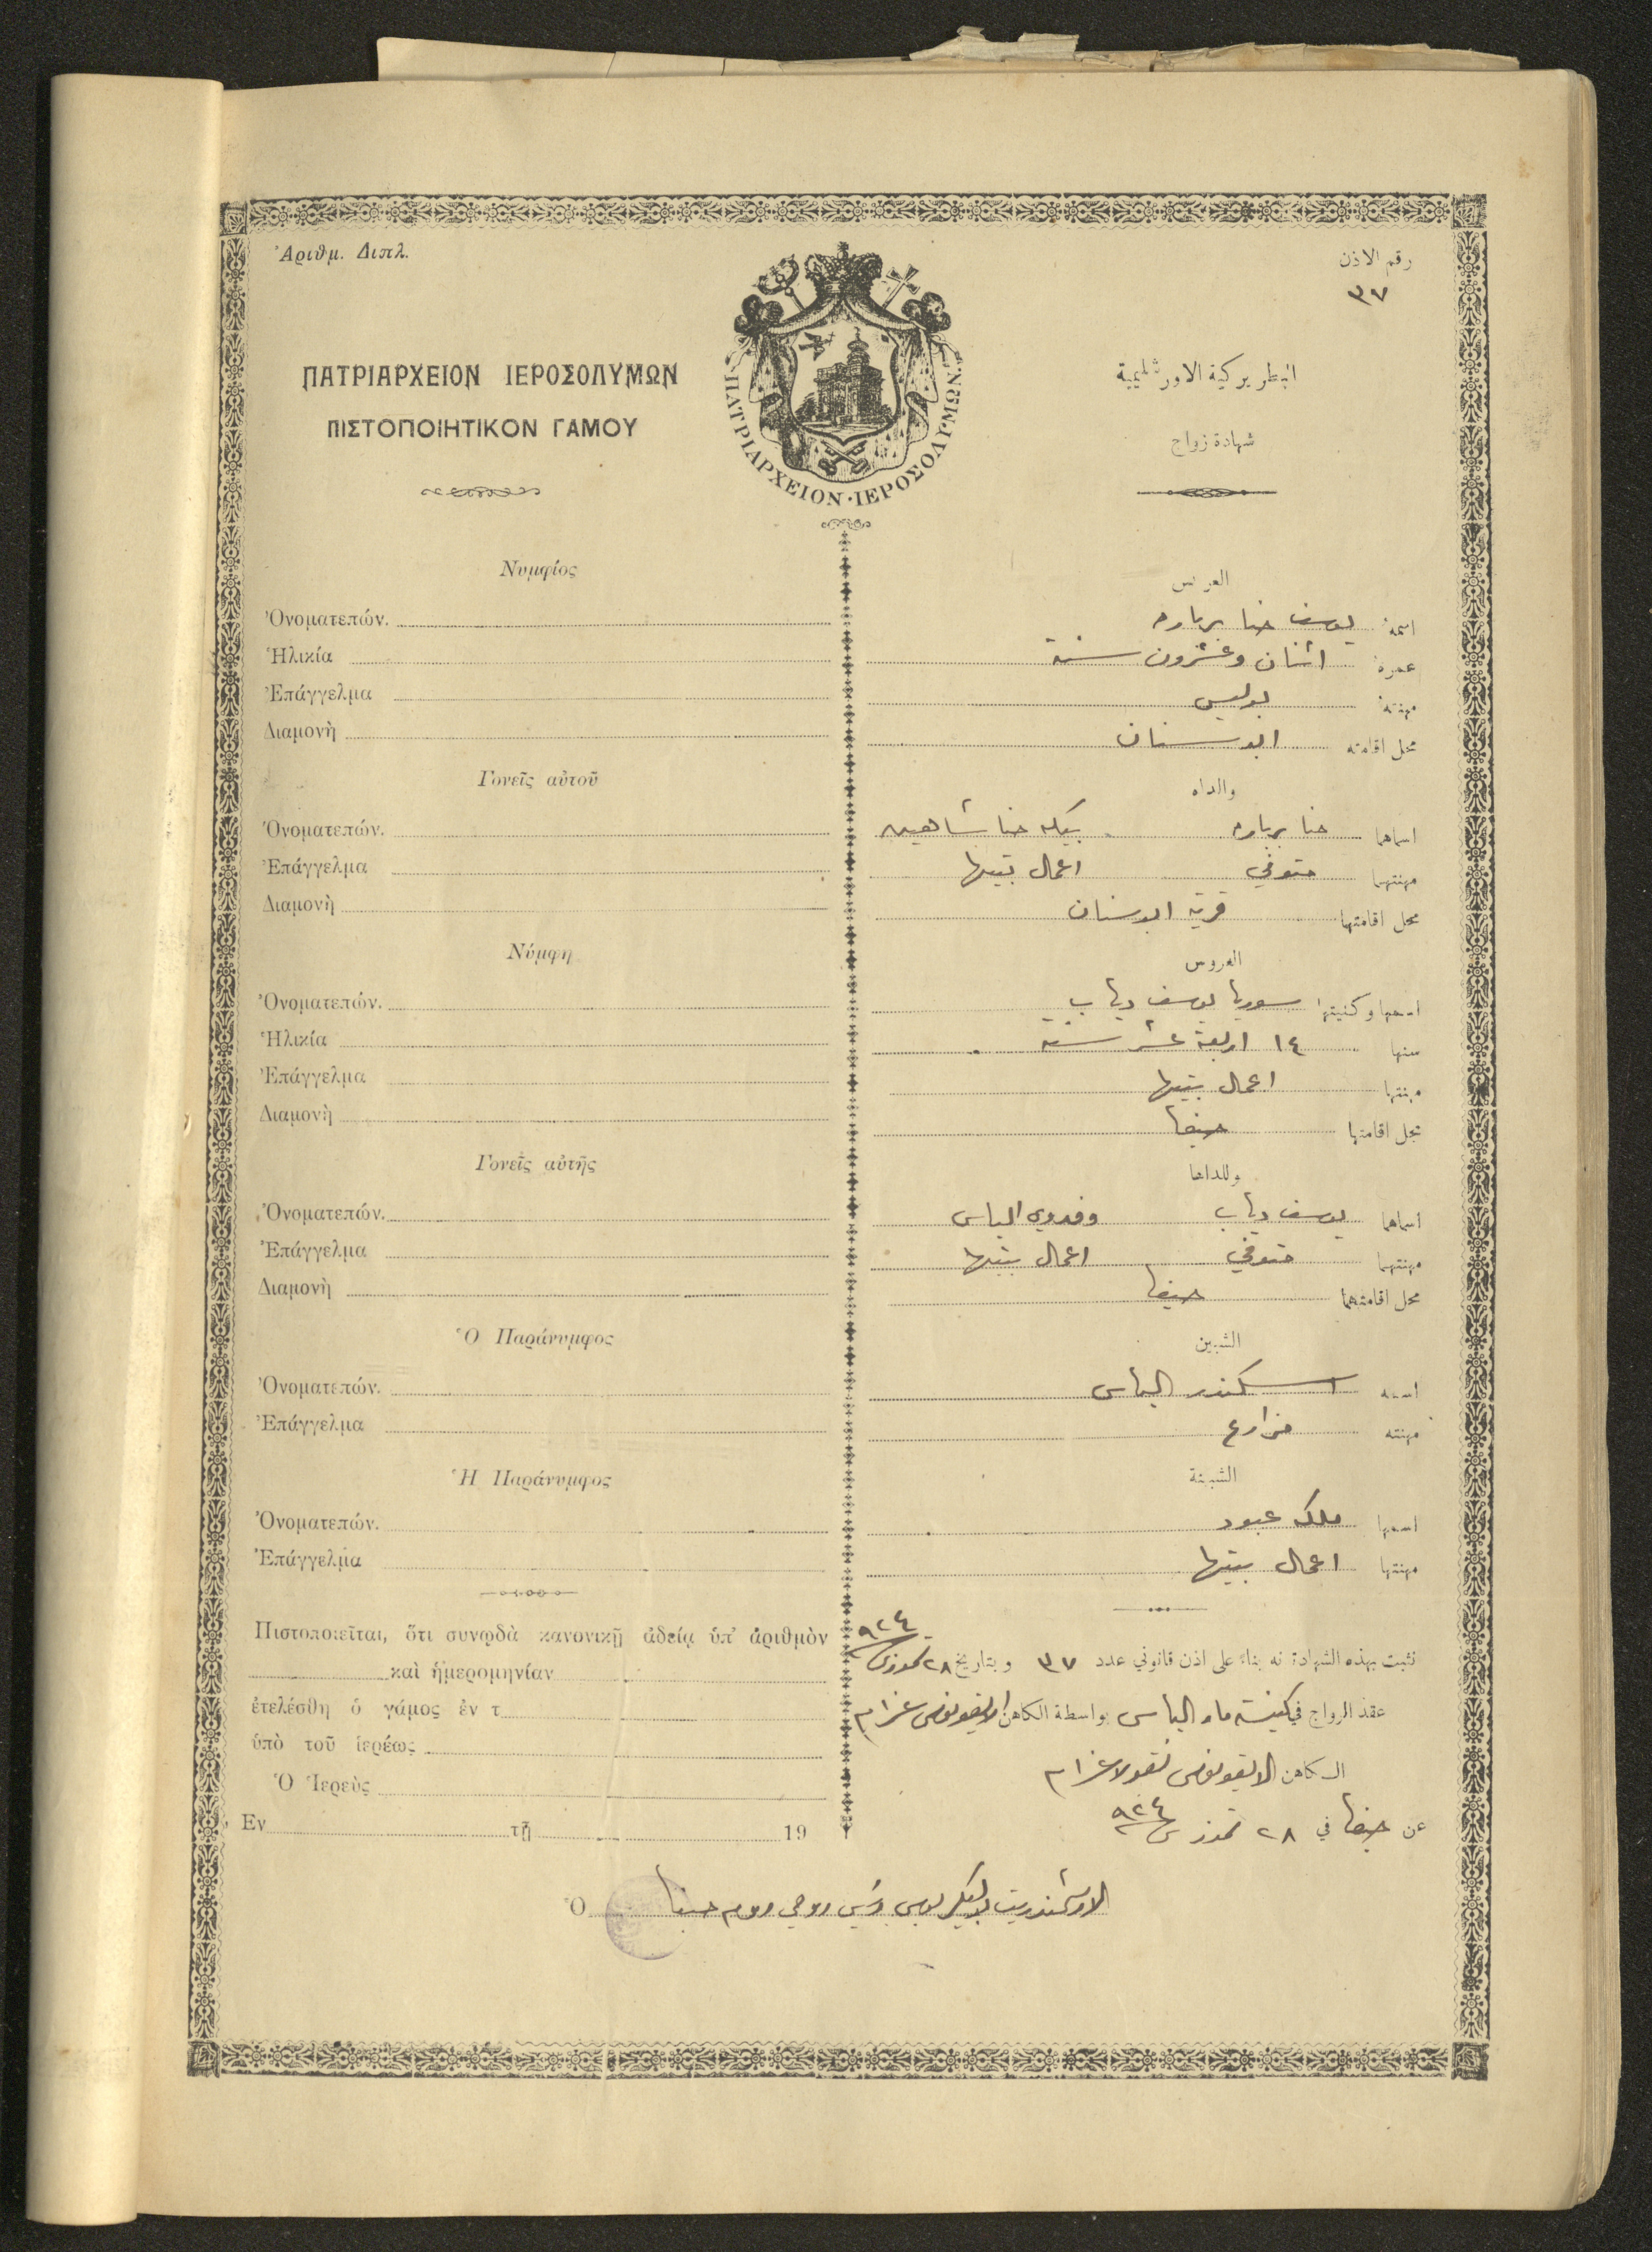 Ἀριθμ. Διπλ.
رقم الاذن
٣٧
ΠΑΤΡΙΑΡΧΕΙΟΝ ΙΕΡΟΣΟΛΥΜΩΝ
ΠΙΣΤΟΠΟΙΗΤΙΚΟΝ ΓΑΜΟΥ
ΠΑΤΡΙΑΡΧΕΙΟΝ·ΙΕΡΟΣΟΛΥΜΩΝ.
البطريركية الاورشليمية
شهادة زواج
Νυμφίος
Ὀνοματεπών.
Ἡλικία
Ἐπάγγελμα
Διαμονὴ
Γονεῖς αὐτοῦ
Ὀνοματεπών.
Ἐπάγγελμα
Διαμονὴ
Νύμφη
Ὀνοματεπών.
Ἡλικία
Ἐπάγγελμα
Διαμονὴ
Γονεῖς αὐτῆς
Ὀνοματεπών.
Ἐπάγγελμα
Διαμονὴ
Ὁ Παράνυμφος
Ὀνοματεπών.
Ἐπάγγελμα
Ἡ Παράνυμφος
Ὀνοματεπών.
Ἐπάγγελμα
Πιστοποιεῖται, ὅτι συνῳδὰ κανονικῇ ἀδείᾳ ὑπ' ἀριθμὸν
καὶ ἡμερομηνίαν
ἐτελέσθη ὁ γάμος ἐν τ
ὑπὸ τοῦ ἱερέως
Ὁ Ἱερεὺς
Εν τῇ 19
العريس
اسمه يوسف حنا برباره
عمره اثنان وعشرون سنة
مهنته بوليس
محل اقامته ابو سنان
والداه
اسماهما حنا برباره حنا شاهين
مهنتهما متوفي اعمال بيتها
محل اقامتهما قرية ابو سنان
العروس
اسمها وكنيتها سوريا يوسف دياب
سنها ١٤ اربعة عشر سنة
مهنتها اعمال بيتها
محل اقامتها حيفا
والداها
اسماهما يوسف دياب وفدوى الياس
مهنتهما متوفي اعمال بيتها
محل اقامتهما حيفا
الشبين
اسمه اسكندر الياس
مهنته مزارع
الشبينة
اسمها ملكه عبود
مهنتها اعمال بيتها
نثبت بهذه الشهادة انه بناءً على اذن قانوني عدد ٣٧ وبتاريخ ٢٨ تموز سنة ٩٢٤
عقد الزواج في كنيسة مار الياس بواسطة الكاهن الايقونومس عزام
الكاهن الايقونومس نقولا عزام
عن حيفا في ٢٨ تموز سنة ٩٢٤
Ὁ الارشمندريت رئيس روحي روم حيفا